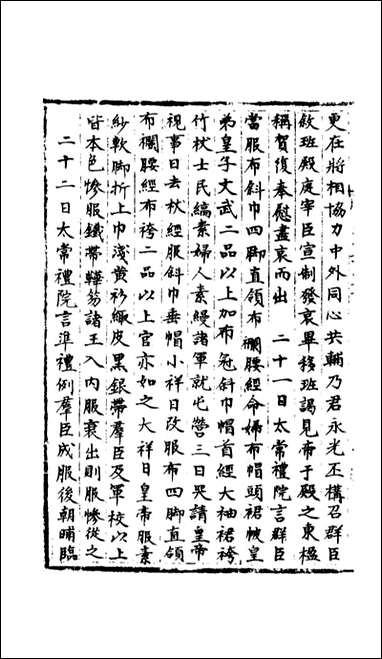 更在將相協力中外同心共輔乃君永光丕構召群臣
敘班殿庭宰臣宣制發哀畢移班謁見帝于殿之東楹
稱賀復奉慰盡哀而出　二十一日太常禮院言群臣
當服布斜巾四脚直領布襴腰絰命婦布帽頭裙帔皇
弟皇子文武二品以上加布冠斜巾帽首絰大袖裙袴
竹杖士民縞素婦人素縵諸軍就屯營三日哭請皇帝
視事日去杖絰服斜巾垂帽小祥日改服布四脚直領
布襴腰絰布袴二品以上官亦如之大祥日皇帝服素
紗軟脚折上巾淺黃衫緅皮黑銀帶羣臣及軍校以上
皆本色慘服鐵帶鞾笏諸王入內服衰出則服慘從之
二十二日太常禮院言準禮例羣臣成服後朝晡臨